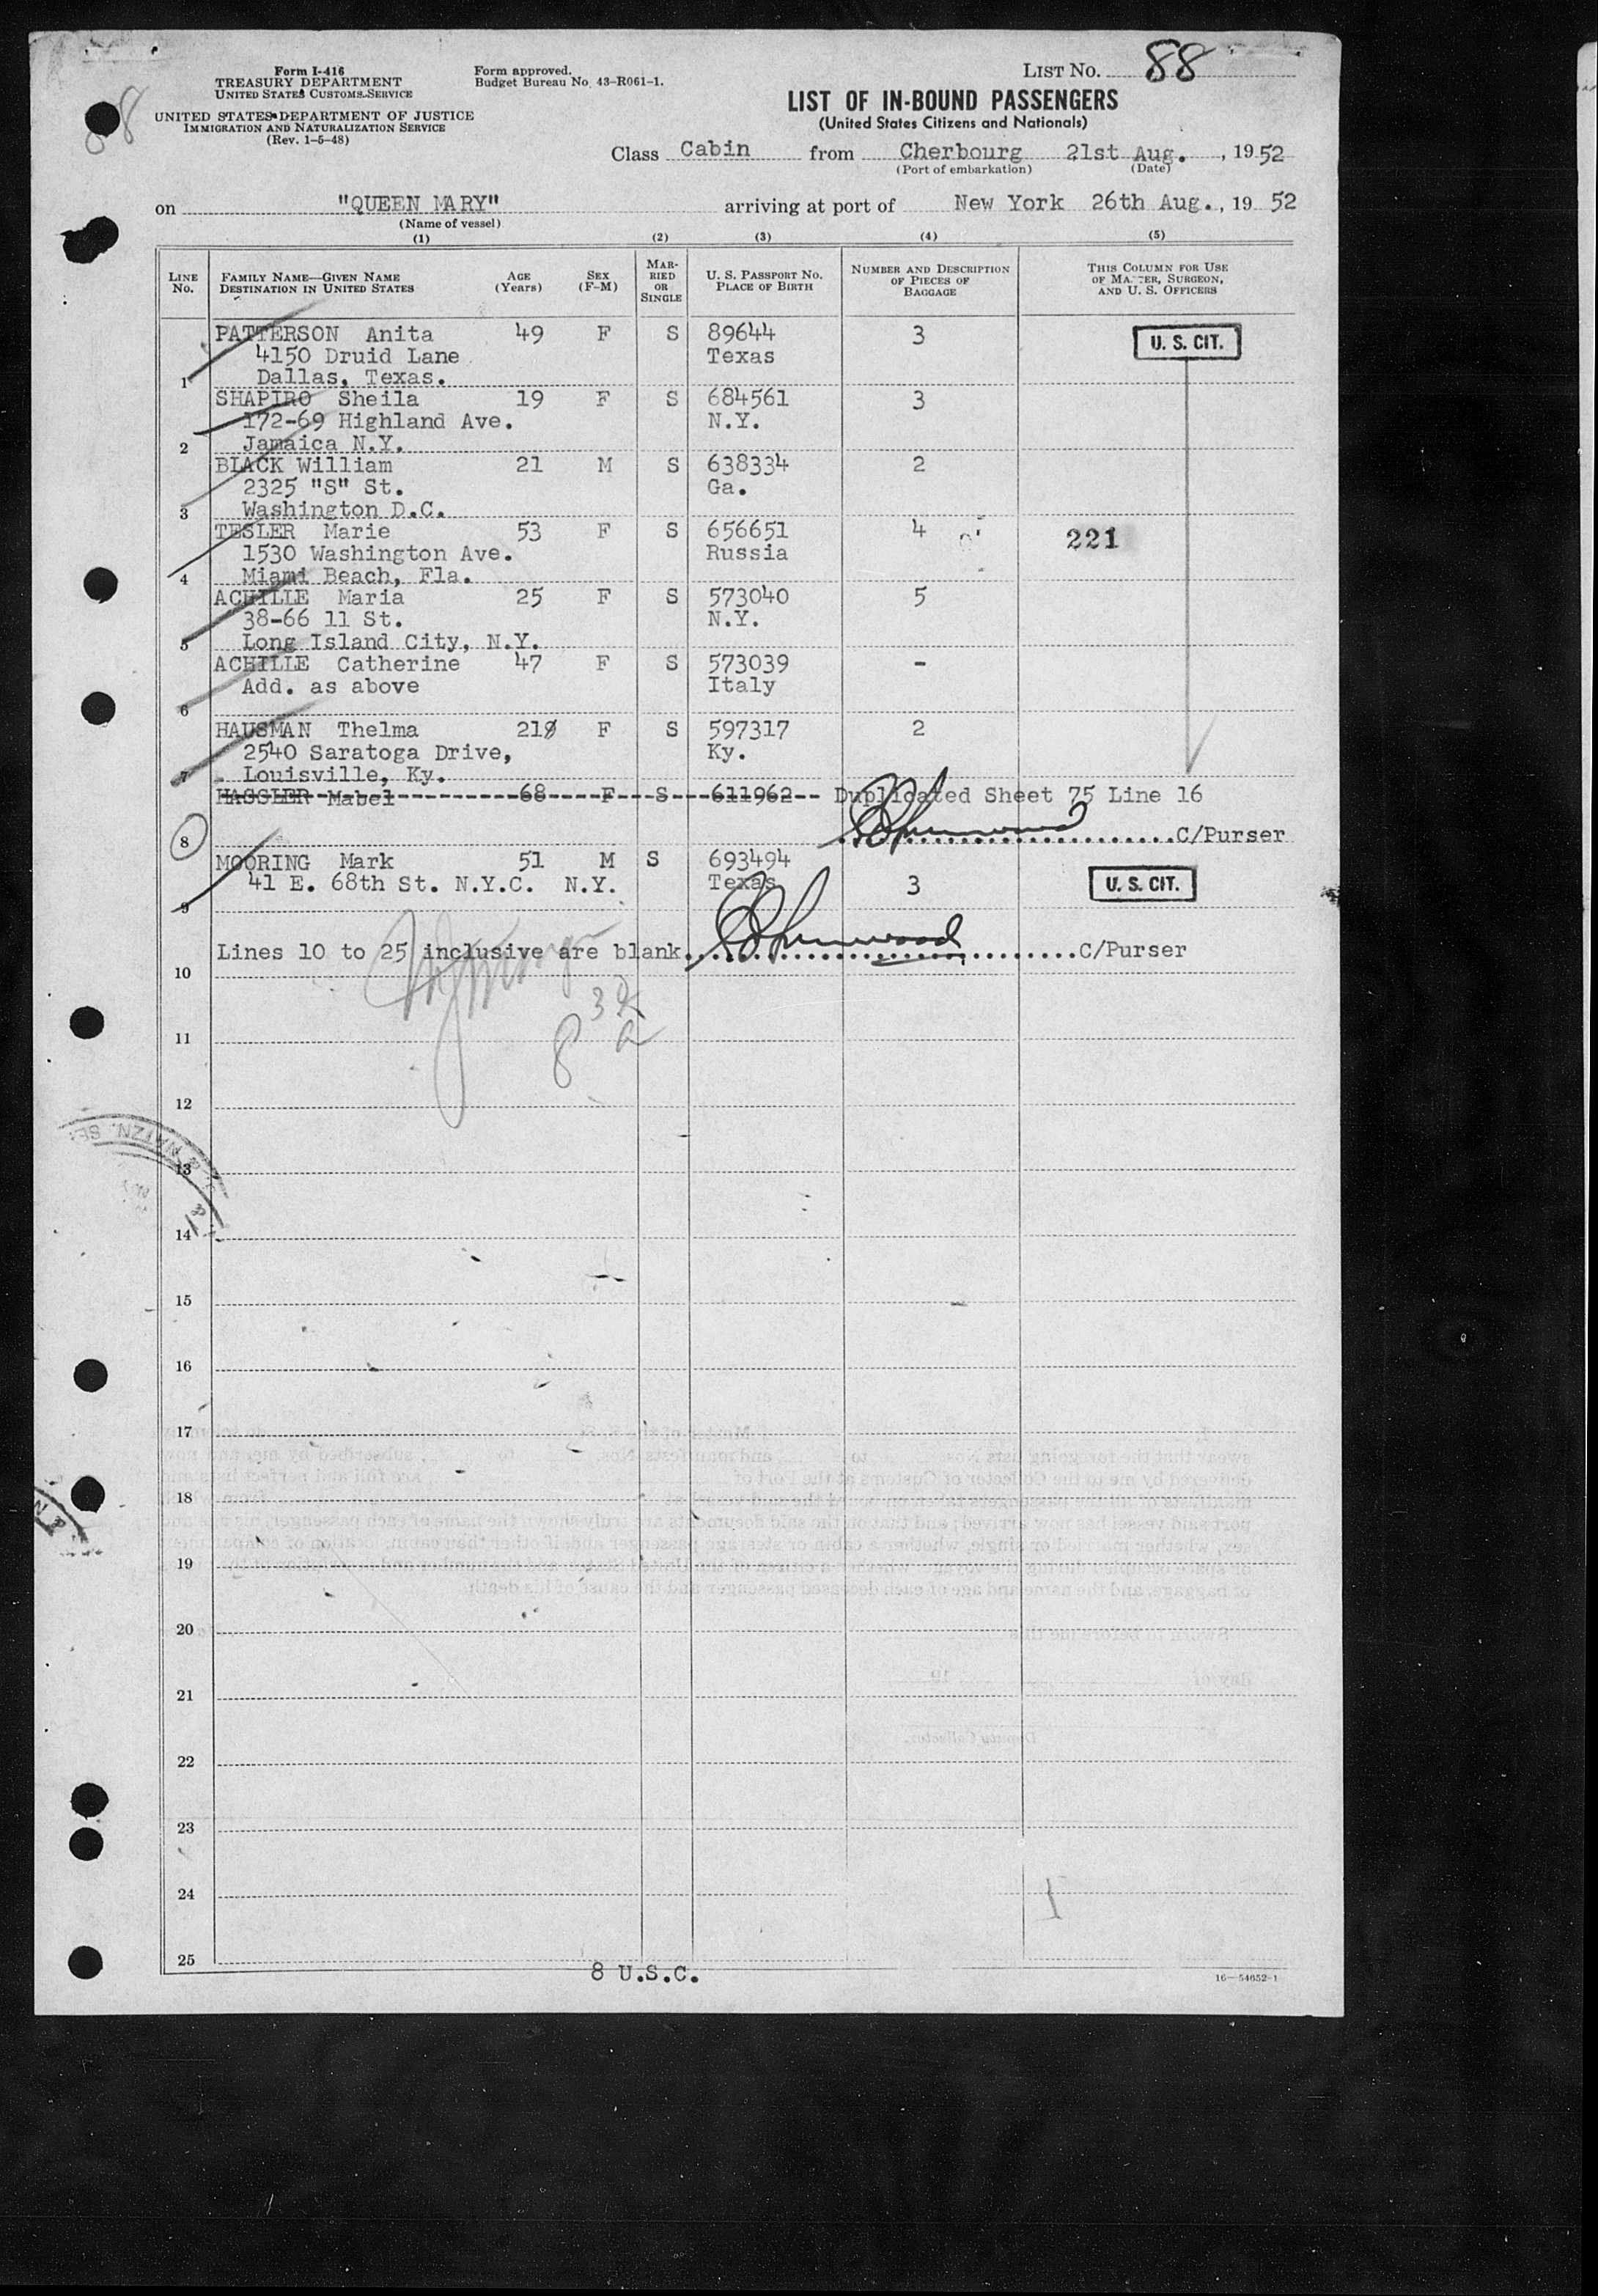 Form I-416
TREASURY DEPARTMENT
UNITED STATES CUSTOMS SERVICE
UNITED STATES DEPARTMENT OF JUSTICE
IMMIGRATION AND NATURALIZATION SERVICE
(Rev. 1-5-48)
Form approved.
Budget Bureau No. 43-R061-1.
LIST No. 88
LIST OF IN-BOUND PASSENGERS
(United States Citizens and Nationals)
Class Cabin from Cherbourg 21st Aug., 1952
(Port of embarkation) (Date)
on "QUEEN MARY" arriving at port of New York 26th Aug., 19 52
(Name of vessel)
(1) (2) (3) (4) (5)
LINE No.
FAMILY NAME—GIVEN NAME
DESTINATION IN UNITED STATES
AGE (Years)
SEX (F-M)
MARRIED OR SINGLE
U. S. PASSPORT NO.
PLACE OF BIRTH
NUMBER AND DESCRIPTION OF PIECES OF BAGGAGE
THIS COLUMN FOR USE OF MASTER, SURGEON, AND U. S. OFFICERS
PATTERSON Anita 49 F S 89644 3 U. S. CIT.
4150 Druid Lane Texas
1 Dallas, Texas.
SHAPIRO Sheila 19 F S 684561 3
172-69 Highland Ave. N.Y.
2 Jamaica N.Y.
BLACK William 21 M S 638334 2
2325 "S" St. Ga.
3 Washington D.C.
TESLER Marie 53 F S 656651 4 221
1530 Washington Ave. Russia
4 Miami Beach, Fla.
ACHILLE Maria 25 F S 573040 5
38-66 11 St. N.Y.
5 Long Island City, N.Y.
ACHILLE Catherine 47 F S 573039 -
Add. as above Italy
6
HAUSMAN Thelma 21 F S 597317 2
2540 Saratoga Drive, Ky.
7 Louisville, Ky.
HASSLER Mabel 68 F S 611962 Duplicated Sheet 75 Line 16
8 C/Purser
MOORING Mark 51 M S 693494
41 E. 68th St. N.Y.C. N.Y. Texas 3 U. S. CIT.
9
Lines 10 to 25 inclusive are blank C/Purser
10
8
11
12
13
14
15
16
17
18
19
20
21
22
23
24
25
8 U.S.C.
16—54652-1